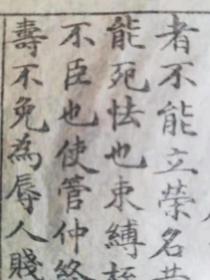 者不能立榮名
能死怯也束縛桎
不臣也使管仲終
壽不免為辱人賤